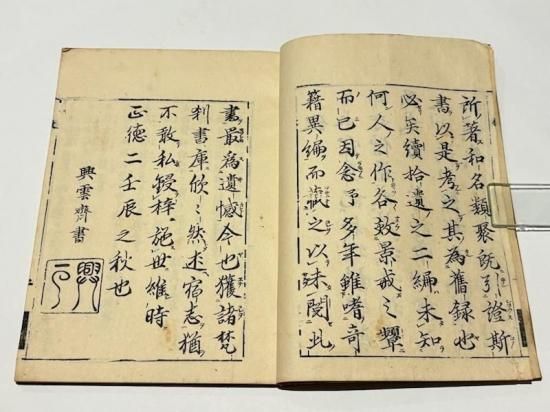 所著和名類聚既引證斯
書以是考之其為舊録也
必矣續拾遺之二編未知
何人之作各效景戒之顰
而已因念予多年雖嗜奇
籍異編而之以未閲此
書最為遺憾今也獲諸梵
刹書庫欣〻然述宿志猶
不敢私鋟梓施世維時
正德二壬辰之秋也
興雲齋書